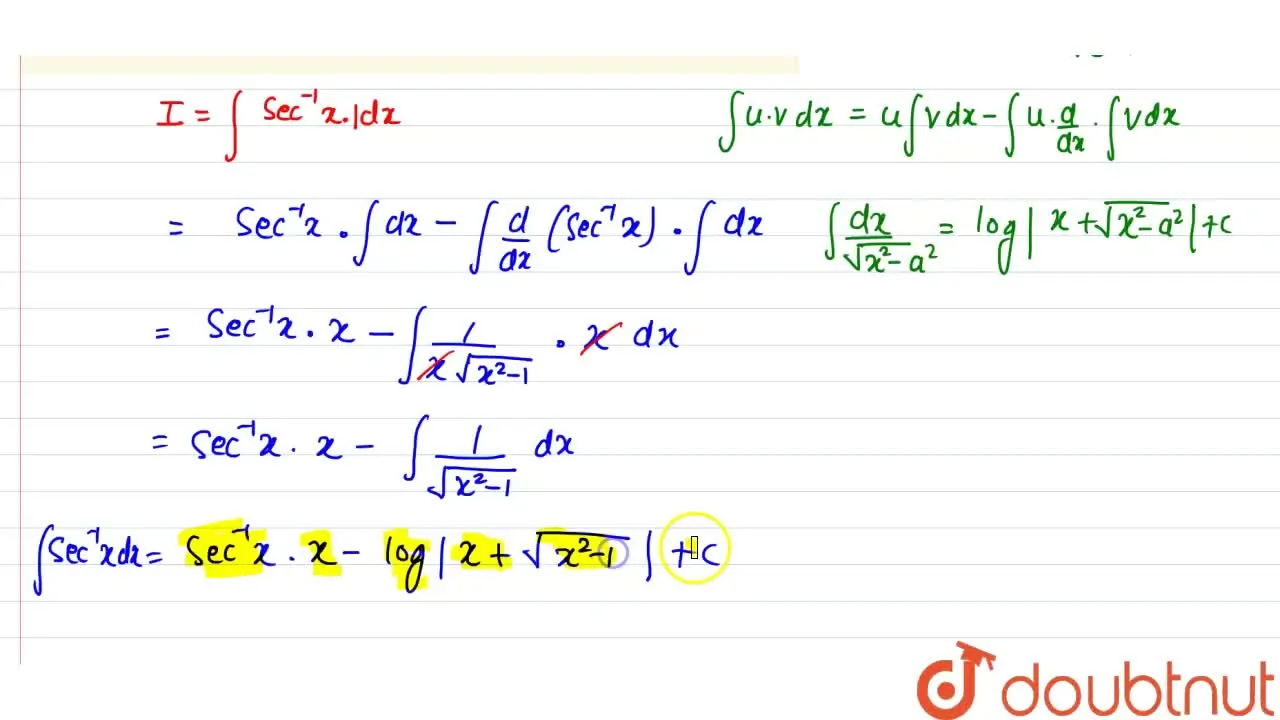 I = ∫ Sec⁻¹x·1dx
∫u·v dx = u∫vdx - ∫u·d/dx·∫vdx
= Sec⁻¹x · ∫dx - ∫ d/dx (Sec⁻¹x) · ∫dx
∫ dx/√x²-a² = log| x+√x²-a² |+c
= Sec⁻¹x · x - ∫ 1/x√x²-1 · x dx
= Sec⁻¹x · x - ∫ 1/√x²-1 dx
∫Sec⁻¹xdx = Sec⁻¹x · x - log| x+√x²-1 | +c
doubtnut